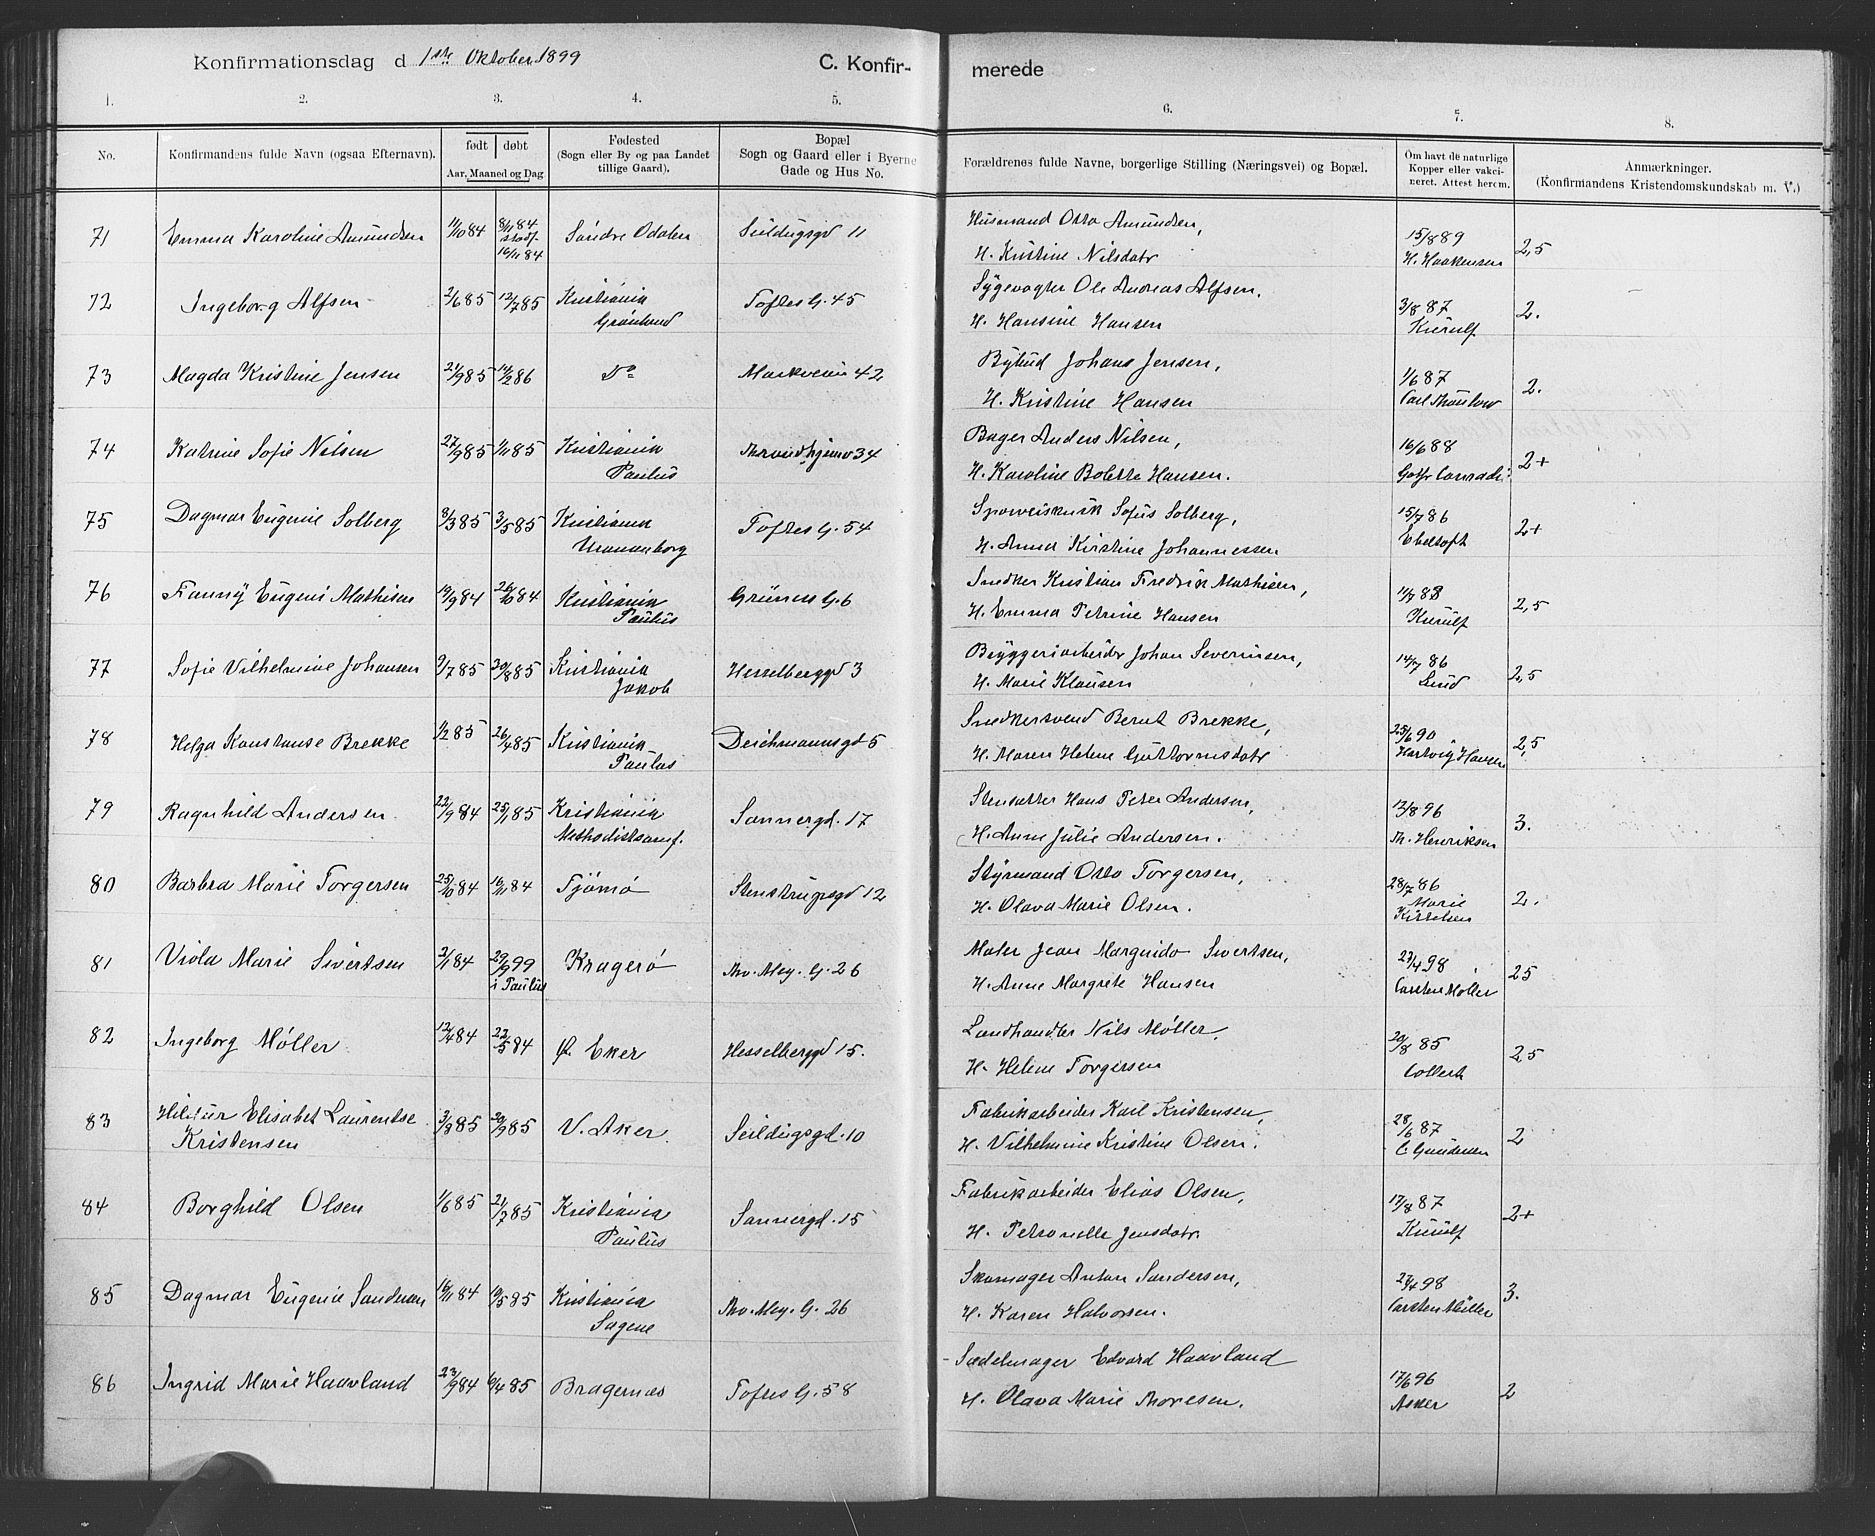 Konfirmationsdag d 1ste Oktober 1899 C. Konfir- merede
1. 2. 3. 4. 5. 6. 7. 8.
No. Konfirmandens fulde Navn (ogsaa Efternavn). født døbt Aar, Maaned og Dag
Fødested (Sogn eller By og paa Landet tillige Gaard).
Bopæl Sogn og Gaard eller i Byerne Gade og Hus No.
Forældrenes fulde Navne, borgerlige Stilling (Næringsvei) og Bopæl.
Om havt de naturlige Kopper eller vakcineret. Attest herom.
Anmærkninger. (Konfirmandens Kristendomskundskab m. V.)
71 Emma Karoline Amundsen 11/10 84 8/11 84 16/11 84 Söndre Odalen Seildugsgd 11 Husmand Otto Amundsen,
H. Kristine Nilsdatr 15/8 89 H. Haakensen 2,5
72 Ingeborg Alfsen 2/6 85 12/7 85 Kristiania Grønland Toftes G. 45 Sygevogter Ole Andreas Alfsen,
H. Hansine Hansen 3/8 87 Kierulf 2.
73 Magda Kristine Jensen 21/9 85 14/2 86 Do Markveien 42 Bybud Johans Jensen,
H. Kristine Hansen 1/6 87 Carl Thaulow 2.
74 Katrine Sofie Nilsen 27/9 85 1/11 85 Kristiania Paulus Throndhjemsv 34 Bager Anders Nilsen,
H. Karoline Bolette Hansen. 16/6 88 Gotfr Conradi 2+
75 Dagmar Eugenie Solberg 8/3 85 3/5 85 Kristiania Uranienborg Toftes G. 54 Sporveiskusk Sofus Solberg,
H. Anna Kristine Johannessen 15/7 86 Ebeltoft 2+
76 Fanny Eugeni Mathisen 19/9 84 26/10 84 Kristiania Paulus Grüners G. 6 Snedker Kristian Fredrik Mathisen,
H. Emma Petrine Hansen 11/7 88 Kierulf 2,5
77 Sofie Vilhelmine Johansen 9/7 85 30/8 85 Kristiania Jakob Hesselberggd 3 Bryggeriarbeider Johan Severinsen,
H. Marie Klausen 14/7 86 Lund 2,5
78 Helga Konstanse Brekke 1/2 85 26/4 85 Kristiania Paulus Deichmannsgd 5 Snedkersvend Bernt Brekke,
H. Maren Helene Guttormsdatr 25/6 90 Hartvig Hansen 2,5
79 Ragnhild Andersen 22/9 84 25/1 85 Kristiania Methodistsamf. Sannergd. 17 Stensætter Hans Peter Andersen,
H. Anne Julie Andersen. 12/8 96 Th. Henriksen 3.
80 Barbra Marie Torgersen 25/10 84 16/11 84 Tjömö Stenstrupsgd 12 Styrmand Otto Torgersen,
H. Olava Marie Olsen. 28/7 86 Marie Kittelsen 2.
81 Viola Marie Sivertsen 2/1 84 29/9 99 i Paulus Kragerø Thv. Mey. G. 26 Maler Jean Marguido Sivertsen,
H. Anne Margrete Hansen 27/4 98 Carsten Møller 25
82 Ingeborg Møller 12/4 84 22/5 84 Ø. Eker Hesselberggd 15. Landhandler Nils Møller,
H. Helene Torgersen 20/8 85 Collett 2,5
83 Hildur Elisabet Laurentse Kristensen 3/8 85 20/9 85 V. Aker Seildugsgd. 10 Fabrikarbeider Karl Kristensen,
H. Vilhelmine Kristine Olsen. 28/6 87 C Gundersen 2
84 Borghild Olsen 1/6 85 21/7 85 Kristiania Paulus Sannergd. 15 Fabrikarbeider Elias Olsen,
H. Petronelle Jensdatr. 17/8 87 Kierulf 2+
85 Dagmar Eugenie Sandersen 18/11 84 10/5 85 Kristiania Sagene Thv. Mey. G. 26 Skomager Anton Sandersen,
H. Karen Halvorsen. 27/4 98 Carsten Müller 3.
86 Ingrid Marie Haavland 23/9 84 6/4 85 Bragernæs Toftes G. 58 Sadelmager Edvard Haavland
H. Olava Marie Thoresen. 17/6 96 Asker 2